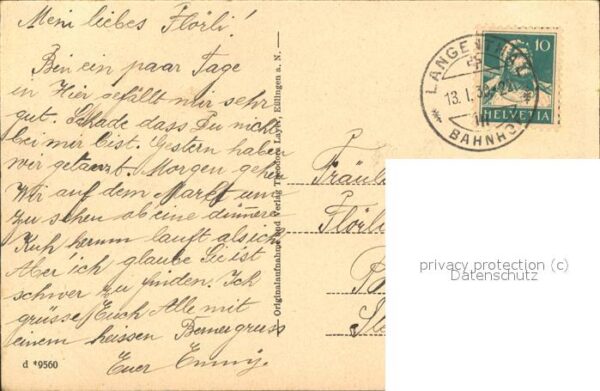 Mein liebes Flörli!
Bin ein paar Tage
in Hier gefällt mir sehr
gut. Schade dass Du nicht
bei mir bist. Gestern haben
wir getanzt. Morgen gehen
Wir auf dem Markt um
zu sehen ob eine dümere
Kuh herum lauft als ich
Aber ich glaube Sie ist
schwer zu finden. Ich
grüsse Euch Alle mit
einem heissen Bernergruss
Euer Emmy.
d *9560
Originalaufnahme und Verlag Theodor Layer, Eßlingen a. N.
LANGENTHAL
13. I. 3
BAHNHOF
10
HELVETIA
Fräul
Flörli
privacy protection (c)
Datenschutz